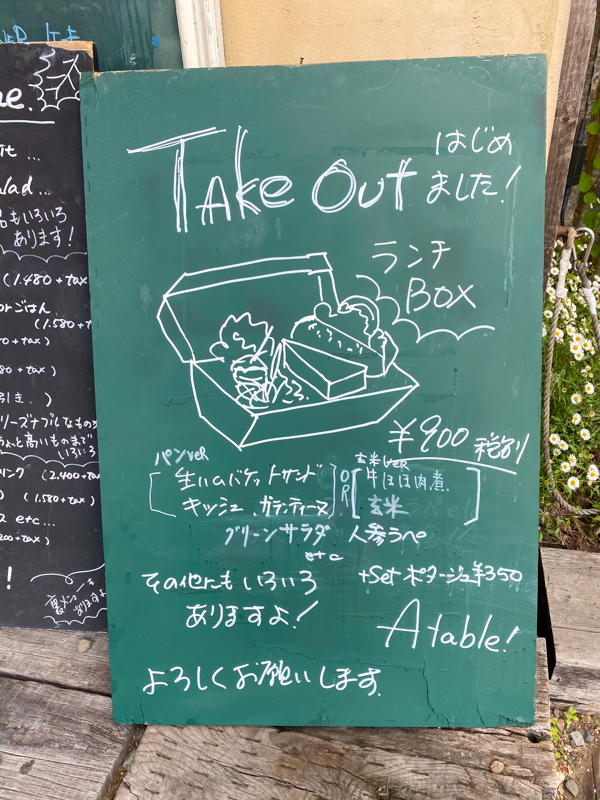 Take Out はじめ
ました!
ランチ
BOX
¥900 税別
パンveR
生ハムバゲットサンド
キッシュ、ガランティーヌ
OR
玄米veR
牛ほほ肉煮
玄米
グリーンサラダ 人参らぺ
etc
その他にもいろいろ
ありますよ!
+Set ポタージュ¥350
A table!
よろしくお願いします。
ne.
it ...
lad ...
品もいろいろ
あります!
(1.480+tax
orごはん
(1.580+t
0+tax)
+tax)
引き.)
リーズナブルなもの
ちょと高いものまで
いろいろ
リンク (2.400+t
) (1.580+tax)
etc...
200+tax)
!
裏メニューも
ありますよ